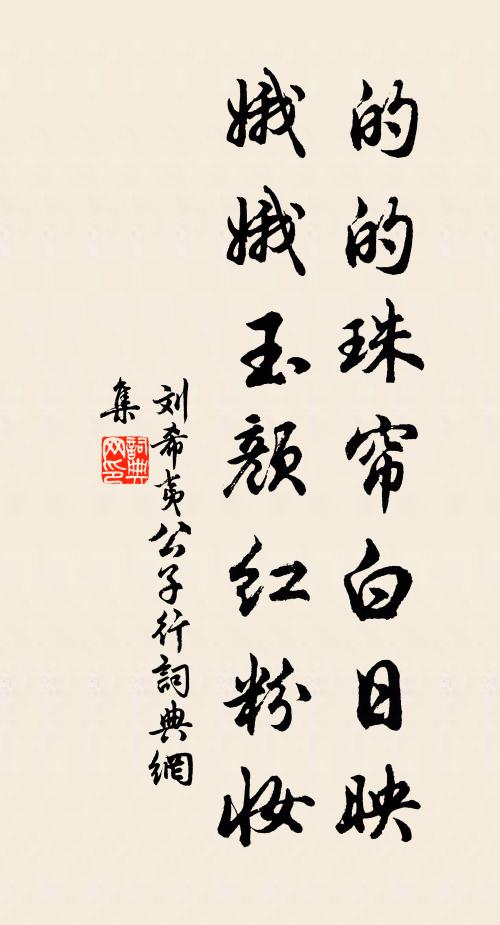 的的珠帘白日映
娥娥玉颜红粉妆
刘希夷公子行詞典網
集
詞典网印